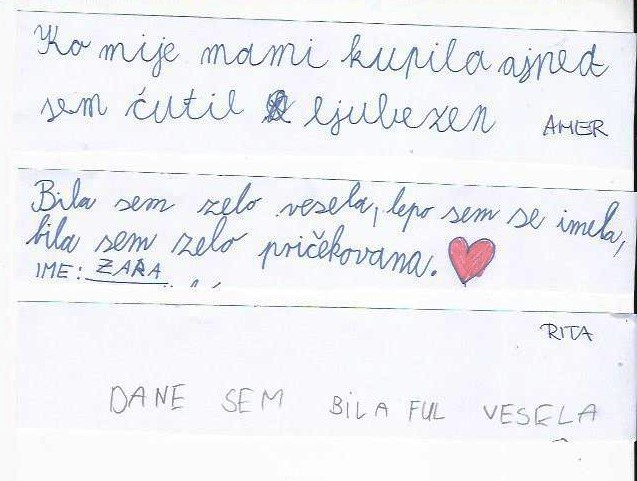 Ko mije mami kupila ajped
sem čutil ljubezen AMER
Bila sem zelo vesela, lepo sem se imela,
bila sem zelo pričekovana.
IME: ZARA
RITA
DANE SEM BILA FUL VESELA